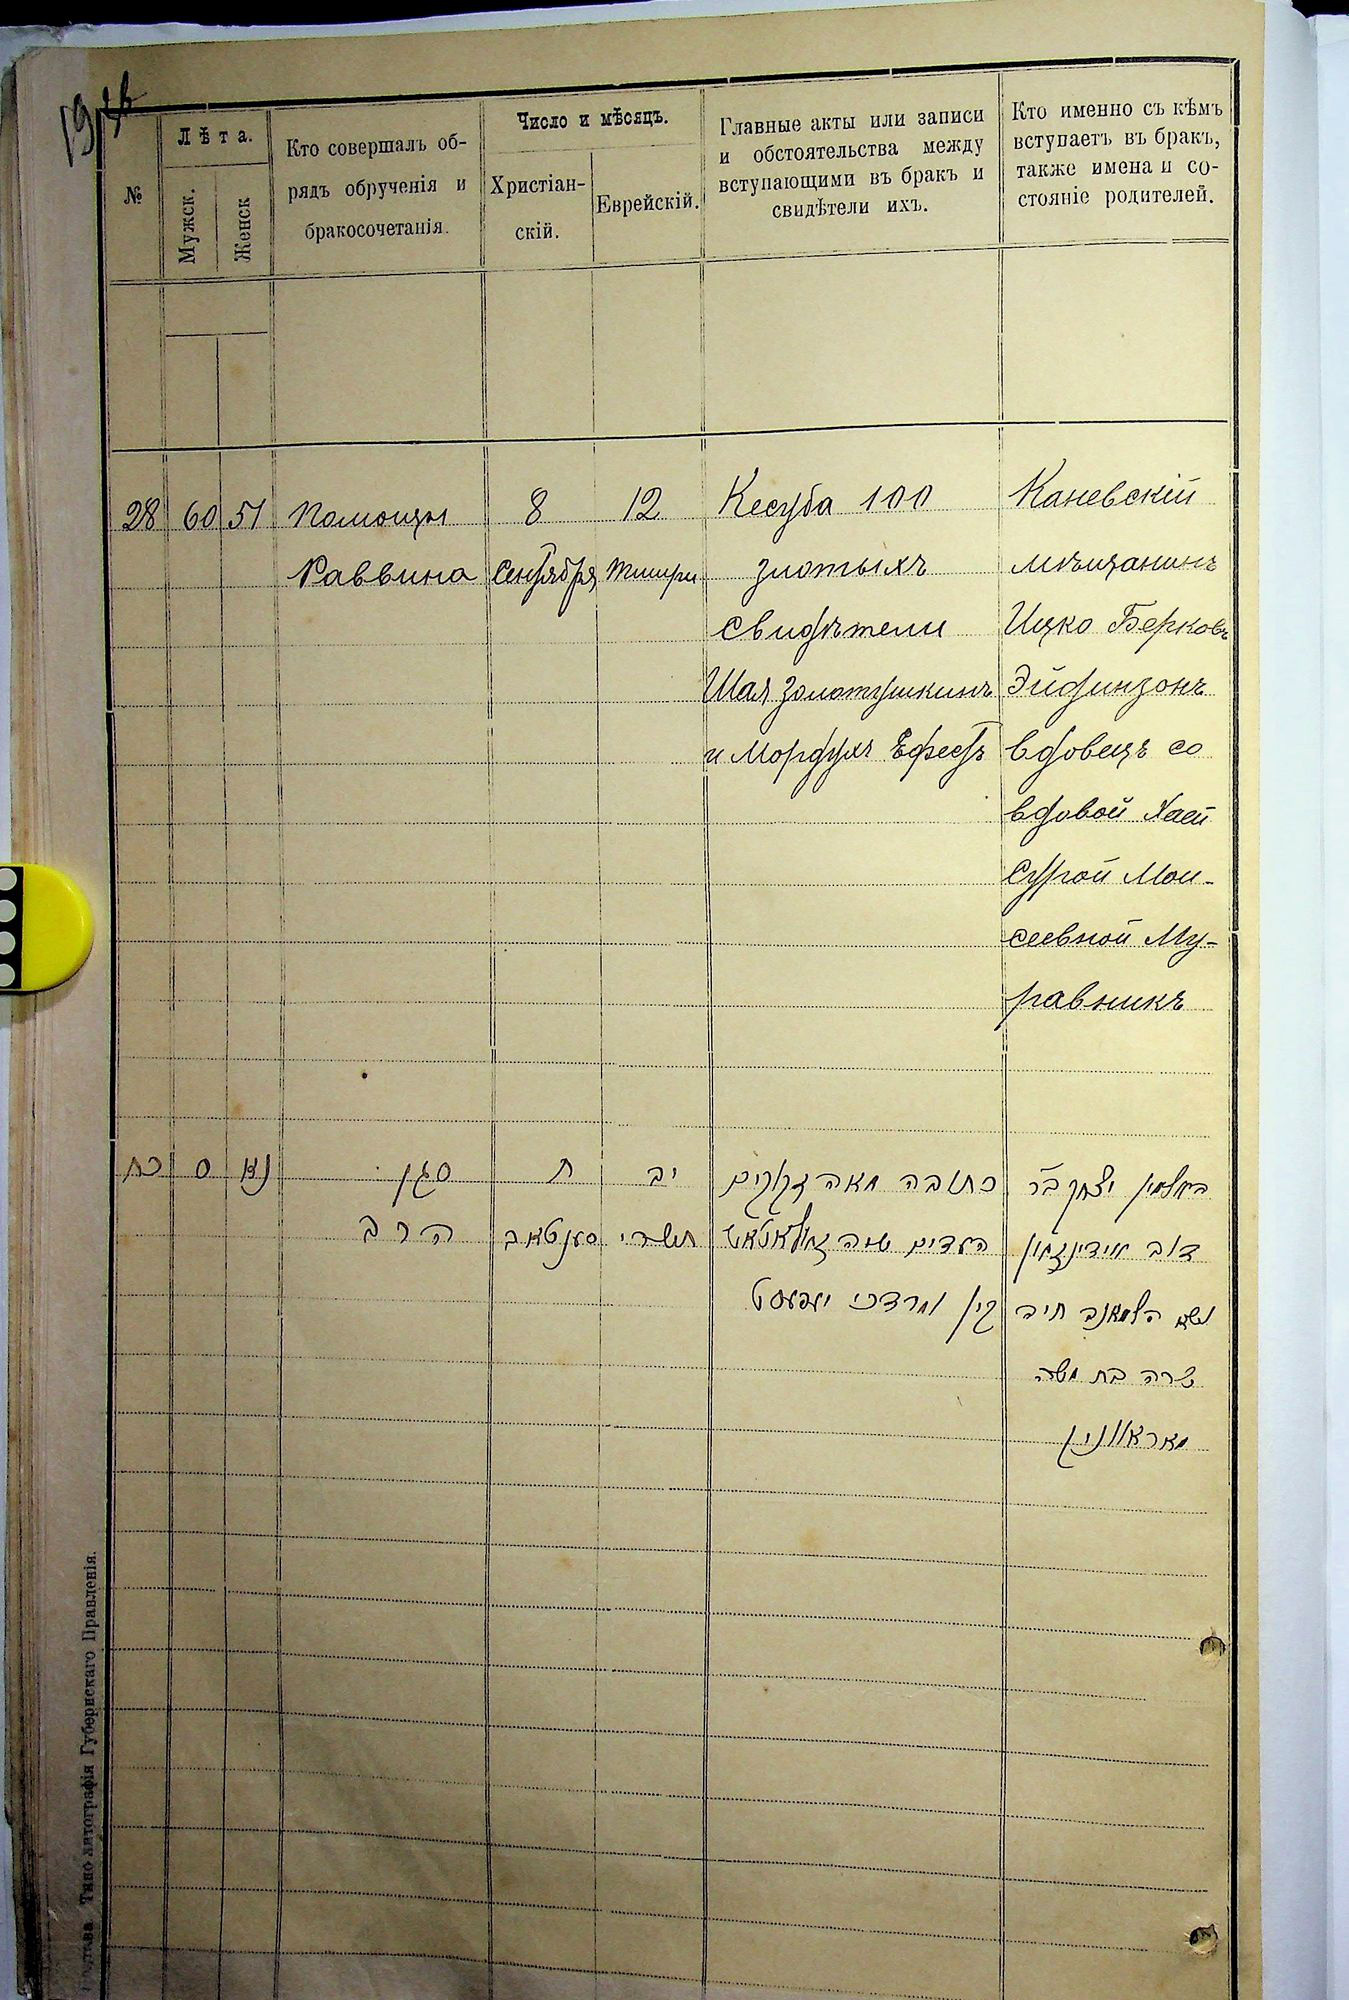 №
Лѣта.
Мужск.
Женск
Кто совершалъ об-
рядъ обрученія и
бракосочетанія.
Число и мѣсяцъ.
Христіан-
скій.
Еврейскій.
Главные акты или записи
и обстоятельства между
вступающими въ бракъ и
свидѣтели ихъ.
Кто именно съ кѣмъ
вступаетъ въ бракъ,
также имена и со-
стояніе родителей.
28
60
51
Помощн
Раввина
8
Сентября
12
Тишри
Кесуба 100
злотыхъ
Свидѣтели
Шая Золотушкинъ
и Мордухъ Ефестъ
Каневскій
мѣщанинъ
Ицко Берковъ
Эйдинзонъ
вдовецъ со
вдовой Хаей
Сурой Мои-
сеевной Му-
равникъ
כח
ס
נא
סגן
הרב
ח
סענטאב
יב
תשרי
כתובה מאה זקוקים
העדים שיה זאלאטאש
קין ומרדכי יעפעסט
האלמן יצחק בר
דוב איידינזאהן
נשא האלמנה חיה
שרה בת משה
מאראווניק
Типо литографія Губернскаго Правленія.